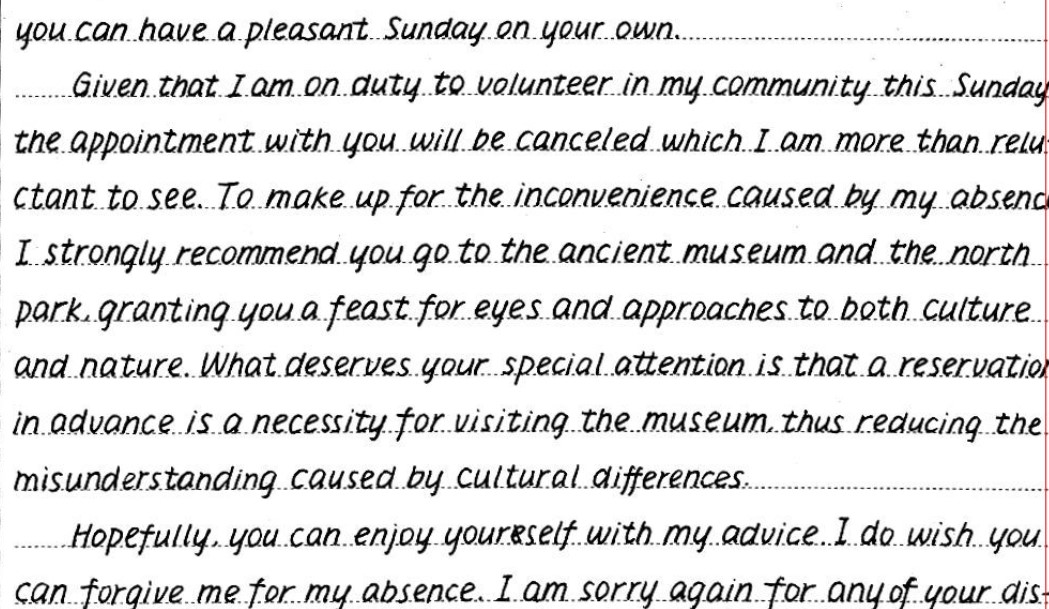 you can have a pleasant Sunday on your own.
Given that I am on duty to volunteer in my community this Sunday
the appointment with you will be canceled which I am more than relu-
ctant to see. To make up for the inconvenience caused by my absenc
I strongly recommend you go to the ancient museum and the north
park, granting you a feast for eyes and approaches to both culture
and nature. What deserves your special attention is that a reservation
in advance is a necessity for visiting the museum, thus reducing the
misunderstanding caused by cultural differences.
Hopefully, you can enjoy yourself with my advice. I do wish you
can forgive me for my absence. I am sorry again for any of your dis-